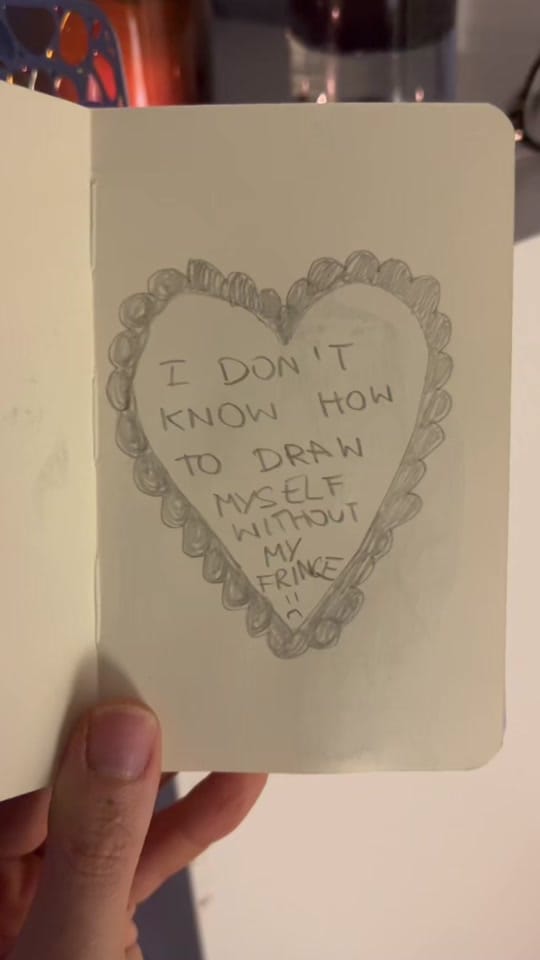 I DON'T
KNOW HOW
TO DRAW
MYSELF
WITHOUT
MY
FRINGE
:(